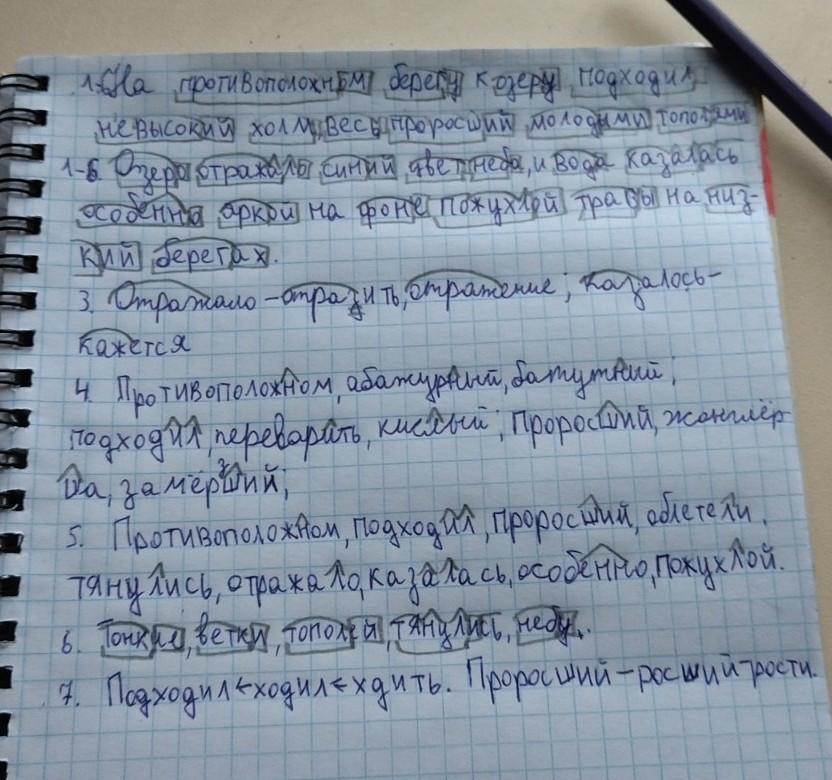 1. На противоположном берегу к озеру подходил
невысокий холм, весь проросший молодыми тополями
1-6. Озеро отражало синий цвет неба, и вода казалась
особенно яркой на фоне пожухлой травы на низ-
кий берегах.
3. Отражало - отразить, отражение; казалось -
кажется
4. Противоположном, абажурный, батутный;
подходил, переварить, кислый; проросший, жонглёр
ша, замёрзший;
5. Противоположном, подходил, проросший, облетели,
тянулись, отражало, казалась, особенно, пожухлой.
6. Тонкие, ветки, тополей, тянулись, небу.
7. Подходил ← ходил ← хдить. Проросший - росший - рости.